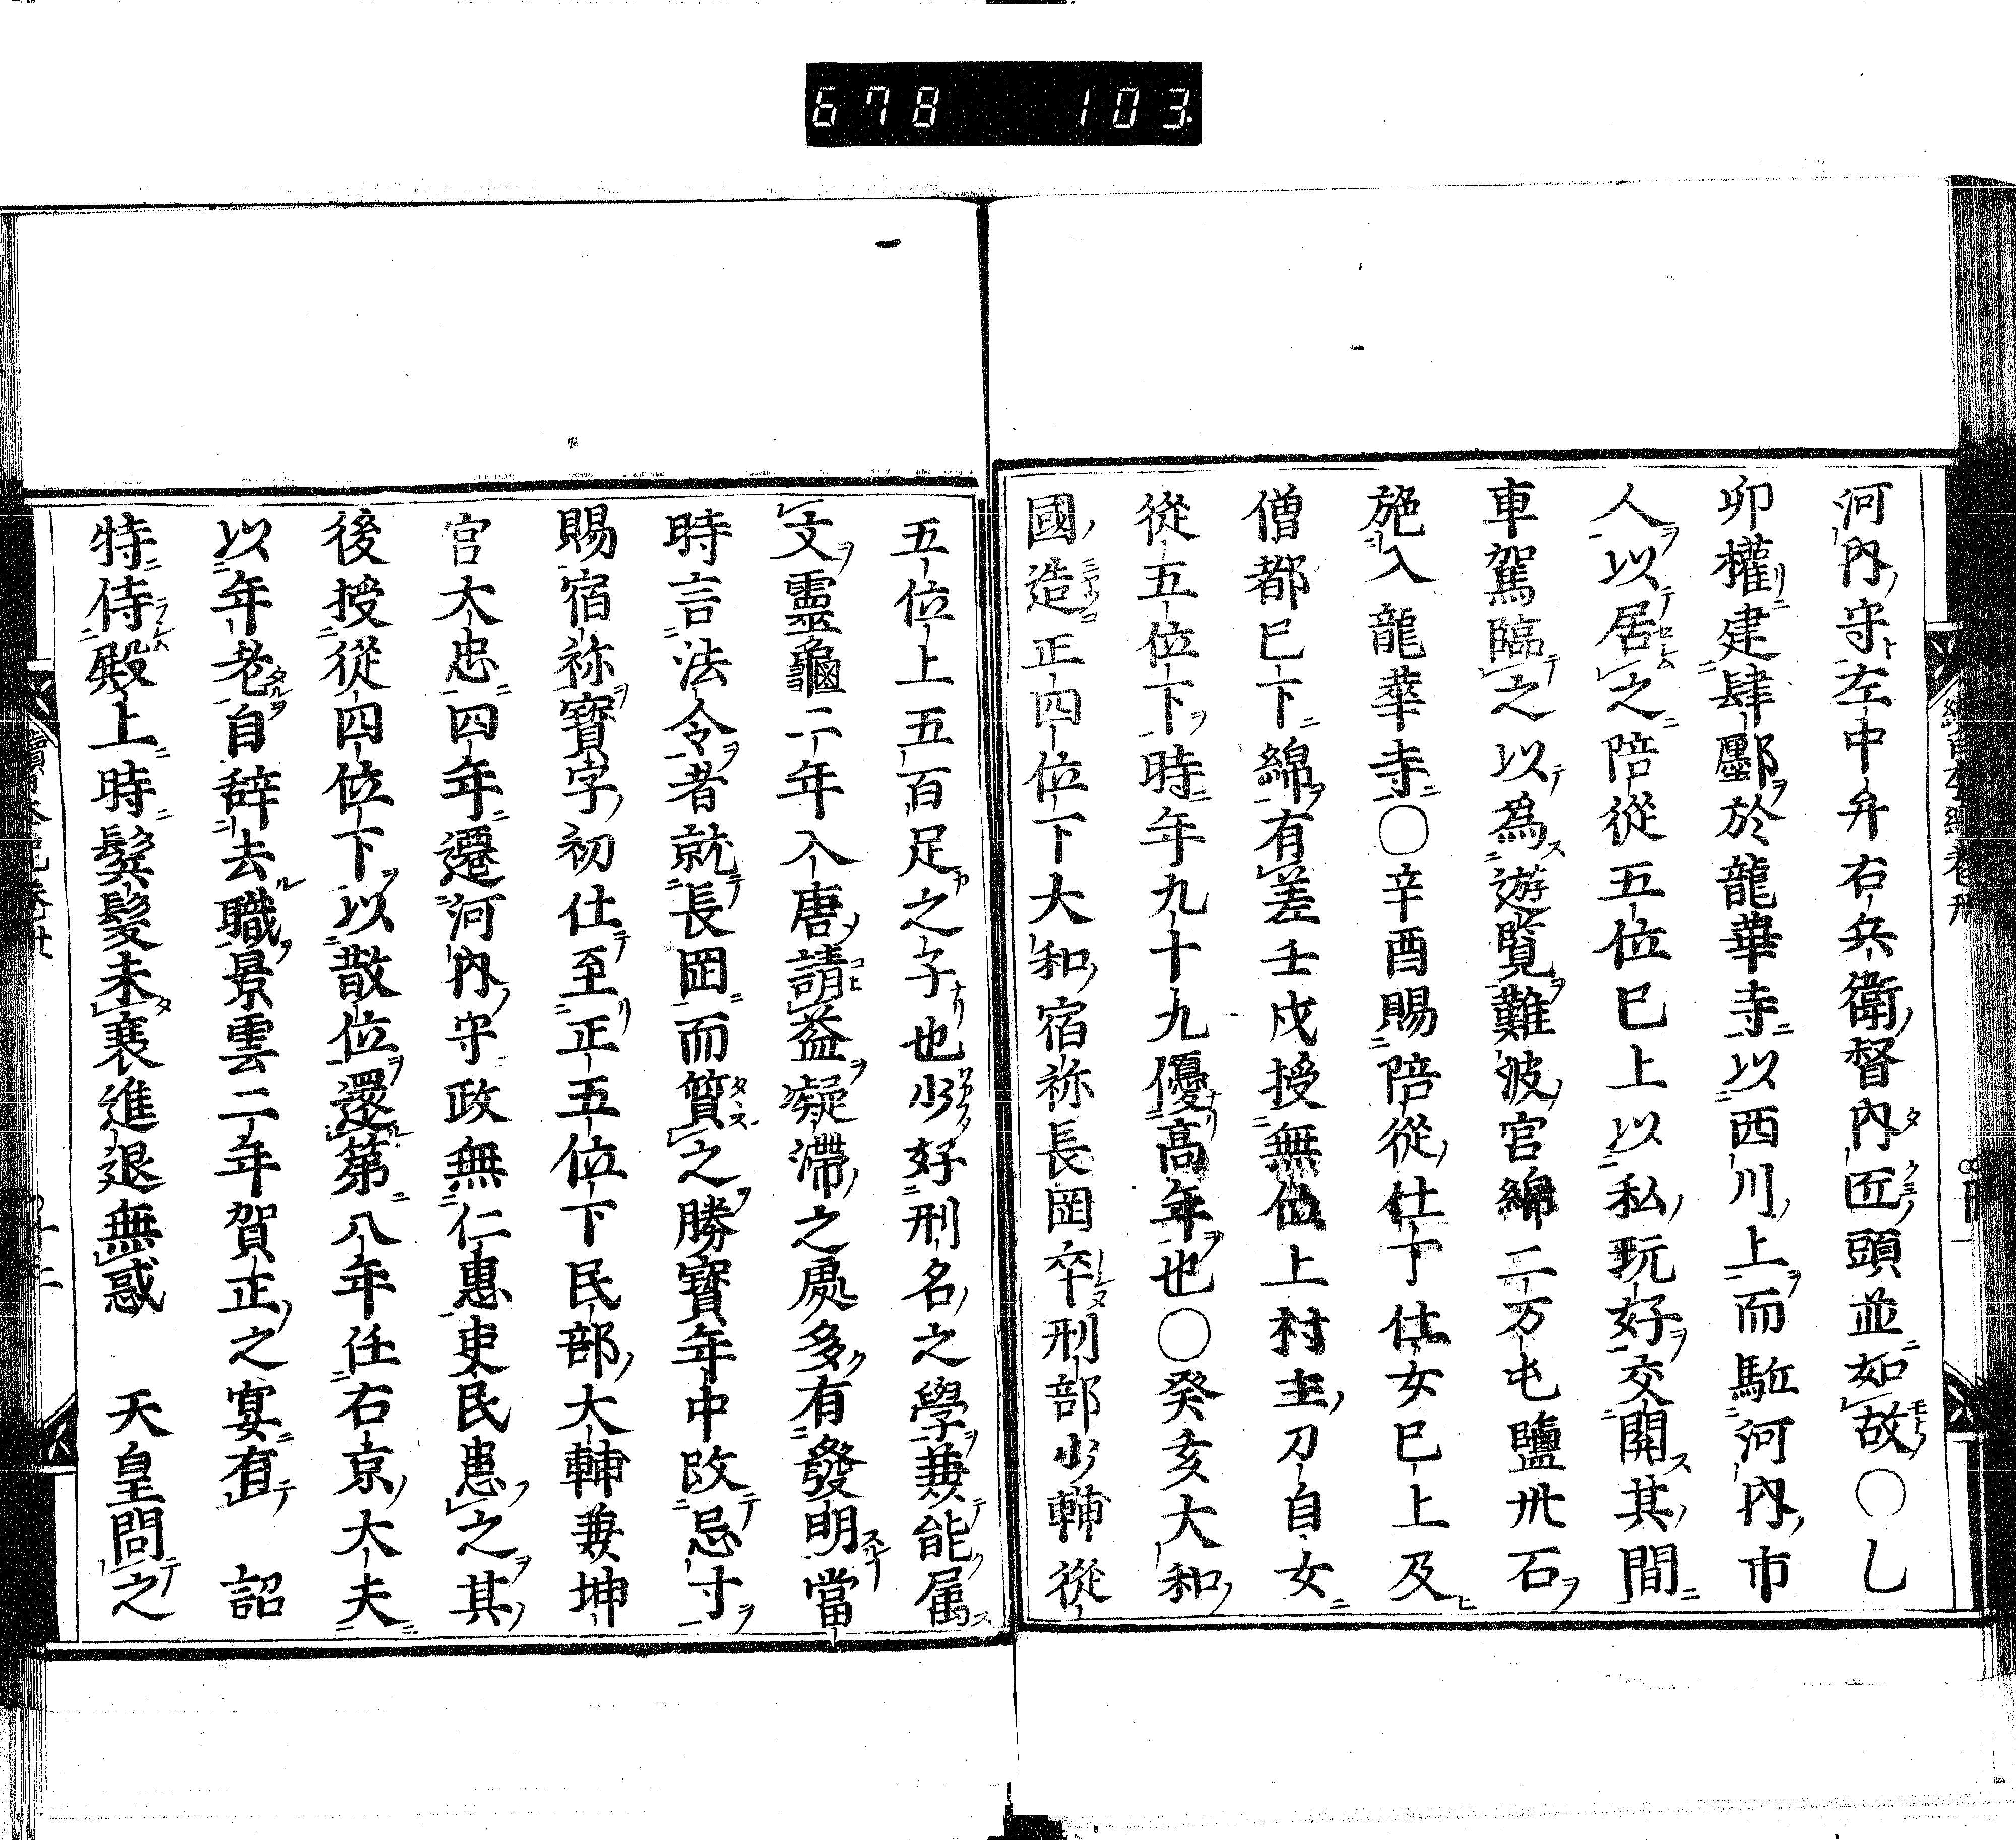 678 103.
河內守左中弁右兵衛督內匠頭並如故○乚
卯權建肆鄽於龍華寺以西川上而駈河內市
人以居之陪從五位巳上以私玩好交關其間
車駕臨之以爲遊覧難波宮綿二万屯鹽卅石
施入龍華寺○辛酉賜陪從仕丁仕女巳上及
僧都巳下綿有差壬戌授無位上村主刀自女
從五位下時年九十九優高年也○癸亥大和
國造正四位下大和宿祢長岡卒刑部少輔從
五位上五百足之子也少好刑名之學兼能属
文靈龜二年入唐請益凝滯之處多有發明當
時言法令者就長岡而質之勝寶年中改忌寸
賜宿祢寶字初仕至正五位下民部大輔兼坤
宮大忠四年遷河內守政無仁惠吏民患之其
後授從四位下以散位還第八年任右京大夫
以年老自辭去職景雲二年賀正之宴有 詔
特侍殿上時鬢髮未衰進退無惑 天皇問之